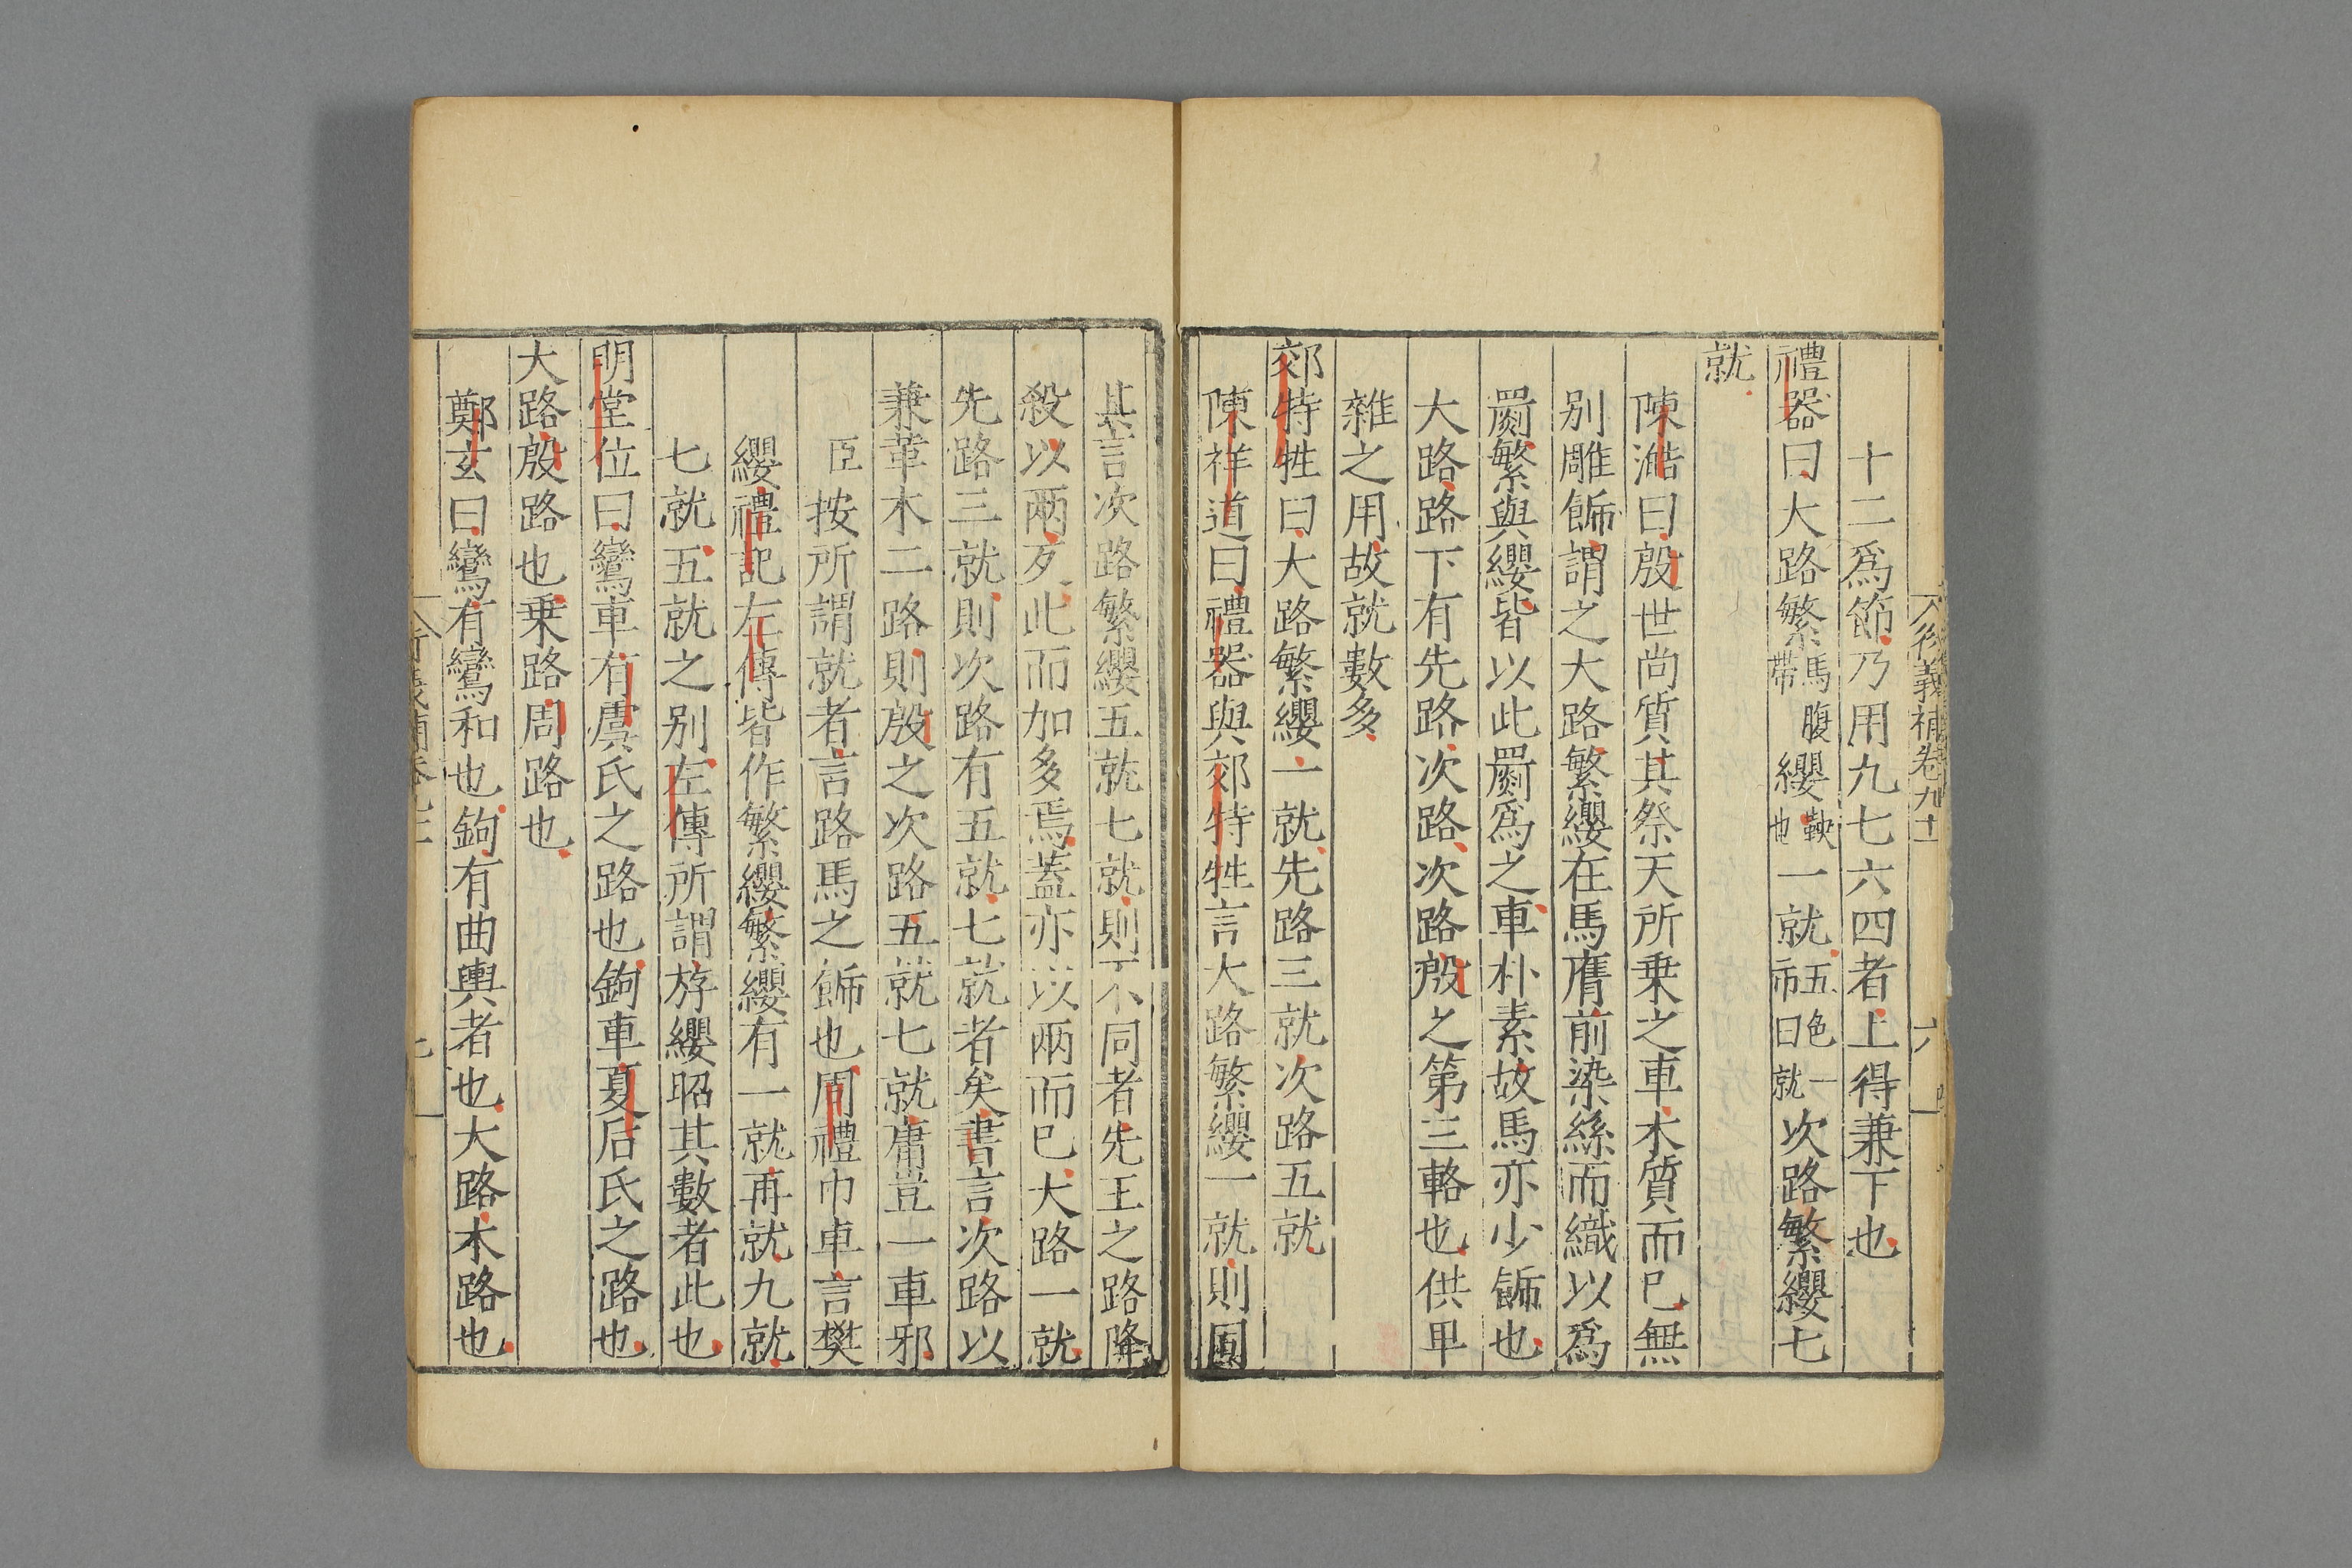 十二爲節乃用九七六四者上得兼下也
禮器曰大路繁馬腹帶纓鞅也一就五色一帀曰就次路繁纓七
就
陳澔曰殷世尚質其祭天所乗之車木質而巳無
别雕餙謂之大路繁纓在馬膺前染絲而織以爲
罽繁與纓皆以此罽爲之車朴素故馬亦少餙也
大路路下有先路次路次路殷之第三輅也供卑
雜之用故就數多
郊特牲曰大路繁纓一就先路三就次路五就
陳祥道曰禮器與郊特牲言大路繁纓一就則同
其言次路繁纓五就七就則不同者先王之路降
殺以兩反此而加多焉蓋亦以兩而巳大路一就
先路三就則次路有五就七就者矣書言次路以
兼革木二路則殷之次路五就七就庸豈一車邪
臣按所謂就者言路馬之餙也周禮巾車言樊
纓禮記左傳皆作繁纓繁纓有一就再就九就
七就五就之别左傳所謂斿纓昭其數者此也
明堂位曰鸞車有虞氏之路也鉤車夏后氏之路也
大路殷路也乗路周路也
鄭玄曰鸞有鸞和也鉤有曲輿者也大路木路也